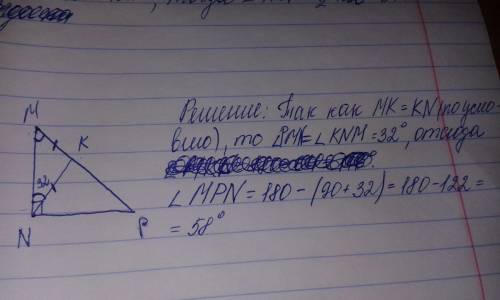 M
K
32
N
P
Решение: Так как MK = KN (по усло-
вию), то ∠M = ∠KNM = 32°, откуда
∠MPN = 180 - (90 + 32) = 180 - 122 =
= 58°